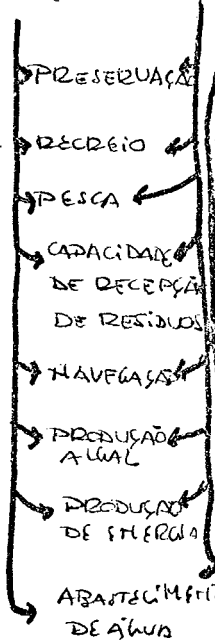 PRESERVAÇÃO
RECREIO
PESCA
CAPACIDADE
DE RECEPÇÃO
DE RESÍDUOS
NAVEGAÇÃO
PRODUÇÃO
AGUAL
PRODUÇÃO
DE ENERGIA
ABASTECIMENT
DE ÁGUA